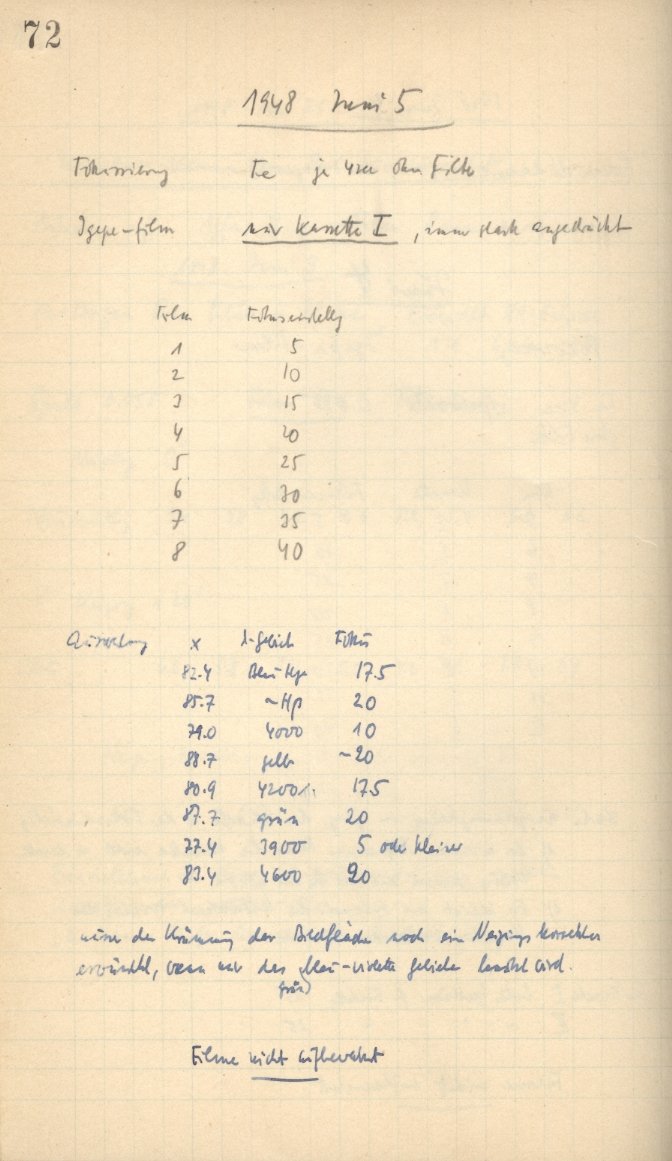 72
1948 Juni 5
Fokussierung Fe je 4sec ohne Filter
Igepe-film nur Kassette I, immer stark angedrückt
Fokuseinstellg
1 5
2 10
3 15
4 20
5 25
6 30
7 35
8 40
Auswertung x λ-gebiet Fokus
82.4 17.5
85.7 ~Hβ 20
79.0 4000 10
88.7 gelb ~20
80.9 4200 17.5
87.7 grün 20
77.4 3900 5 oder kleiner
83.4 4600 20
der Krümmung der Bildfläche noch ein Neigungs korrektur
erwünscht, wenn nur das blau-violette gebiet benötzt wird.
grün)
Filme nicht aufbewahrt